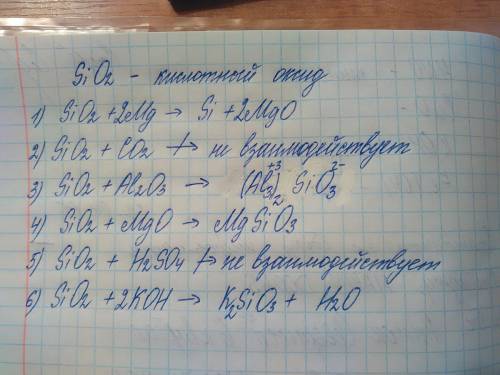 SiO2 - кислотный оксид
1) SiO2 + 2Mg → Si + 2MgO
2) SiO2 + CO2 ↛ не взаимодействует
3) SiO2 + Al2O3 → (Al3)2^+3 SiO3^2-
4) SiO2 + MgO → MgSiO3
5) SiO2 + H2SO4 ↛ не взаимодействует
6) SiO2 + 2KOH → K2SiO3 + H2O